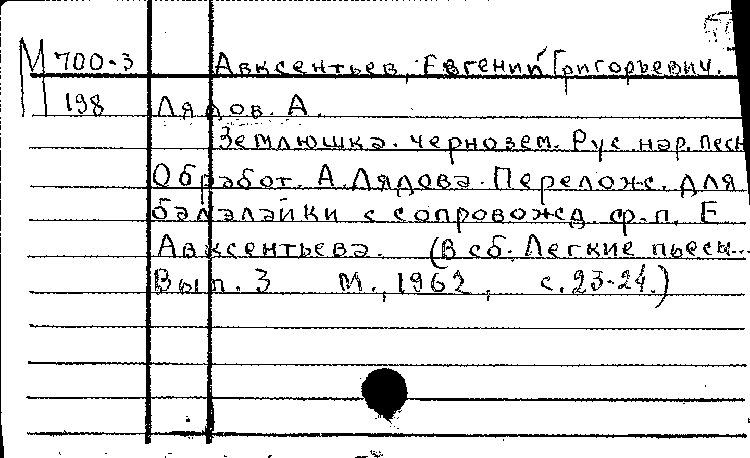 М 700-3 Авксентьев, Евгений Григорьевич.
198 Лядов. А.
Землюшка. чернозем. Рус. нар. песн
Обработ. А. Лядова. Перелож. для
балалайки с сопровожд. ф.-п. Е
Авксентьева. (В сб. Легкие пьесы...
Вып. 3 М., 1962, с. 23-24.)